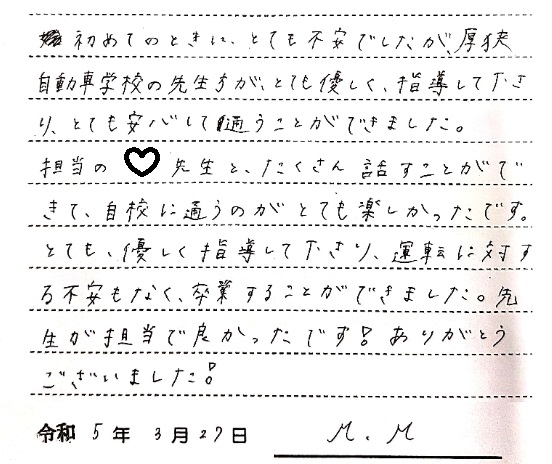 初めてのときに、とても不安でしたが、厚狭
自動車学校の先生方が、とても優しく、指導して下さ
り、とても安心して通うことができました。
担当の ♡ 先生と、たくさん話すことがで
きて、自校に通うのがとても楽しかったです。
とても、優しく指導して下さり、運転に対す
る不安もなく、卒業することができました。先
生が担当で良かったです!ありがとう
ございました!
令和 5年 3月27日 M.M